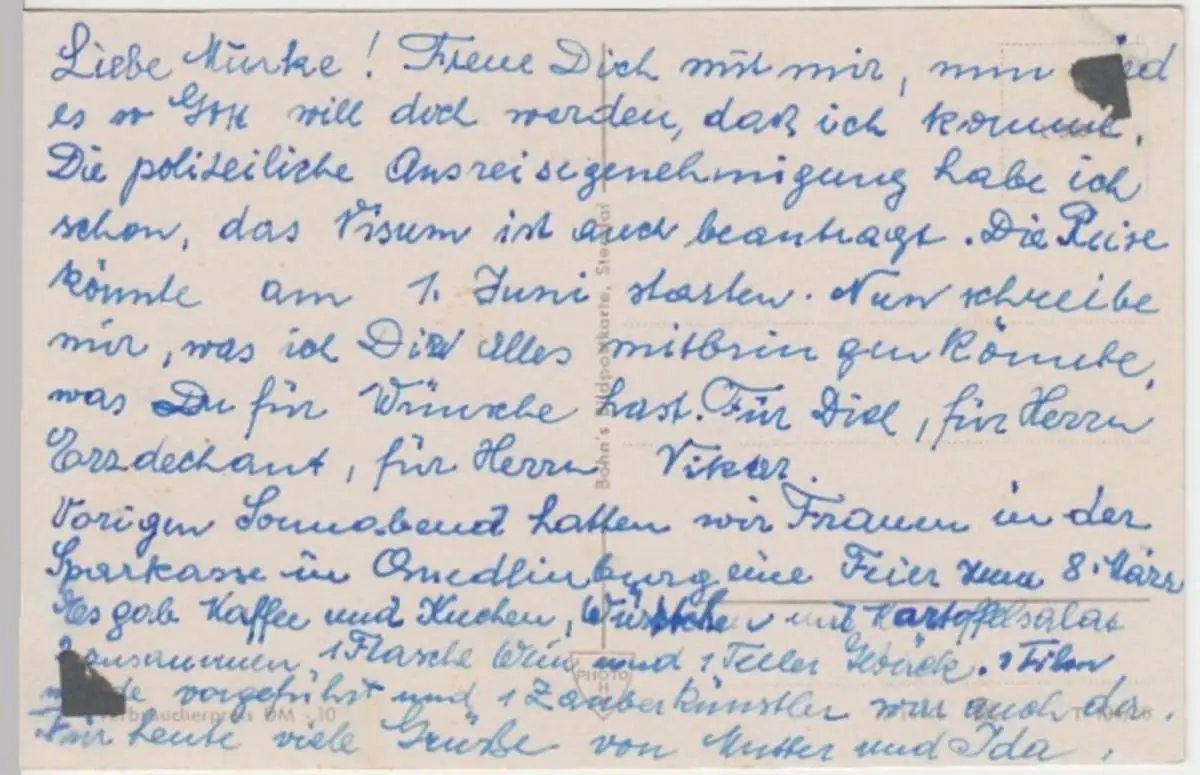 Liebe Murke! Freue Dich mit mir, nun
es so Gott will doch werden, daß ich komme.
Die polizeiliche Ausreisegenehmigung habe ich
schon, das Visum ist auch beantragt. Die Reise
könnte am 1. Juni starten. Nun schreibe
mir, was ich Dir alles mitbringen könnte,
was Du für Wünsche hast. Für Dich, für Herrn
Erzdechant, für Herrn Vikar.
Vorigen Sonnabend hatten wir Frauen in der
Sparkasse in Quedlinburg eine Feier zum 8. März
Es gab Kaffee und Kuchen, Würstchen mit Kartoffelsalat
zusammen 1 Flasche Wein und 1 Teller Gebäck. 1 Film
vorgeführt und 1 Zauberkünstler war auch da.
Für heute viele Grüße von Mutter und Ida.
Bohn's Bildpostkarte,
PHOTO
Verbraucherpreis DM -.10